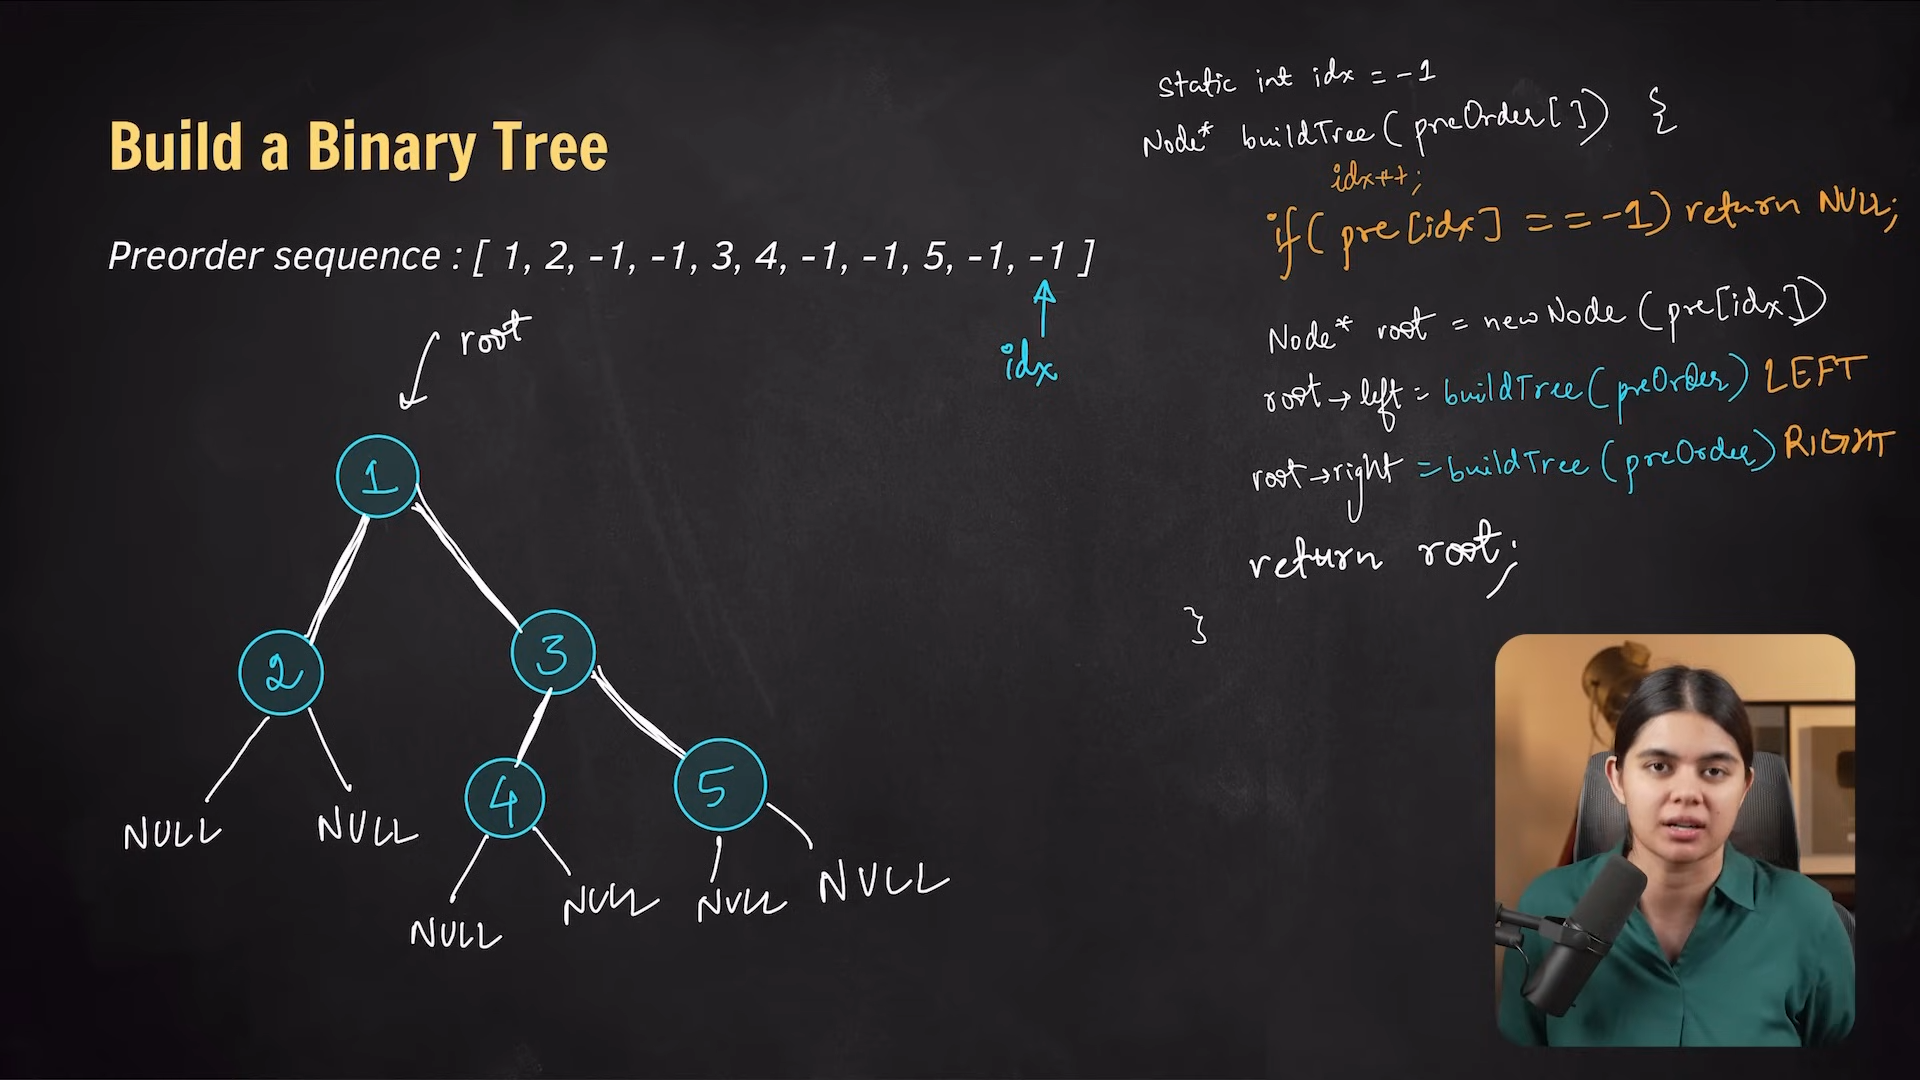 Build a Binary Tree
Preorder sequence : [ 1, 2, -1, -1, 3, 4, -1, -1, 5, -1, -1 ]
idx
root
1
2
3
4
5
NULL
NULL
NULL
NULL
NULL
NULL
static int idx = -1
Node* buildTree(preOrder[]) {
idx++;
if( pre[idx] == -1) return NULL;
Node* root = new Node (pre[idx])
root→left = buildTree(preOrder) LEFT
root→right = buildTree(preOrder) RIGHT
return root;
}